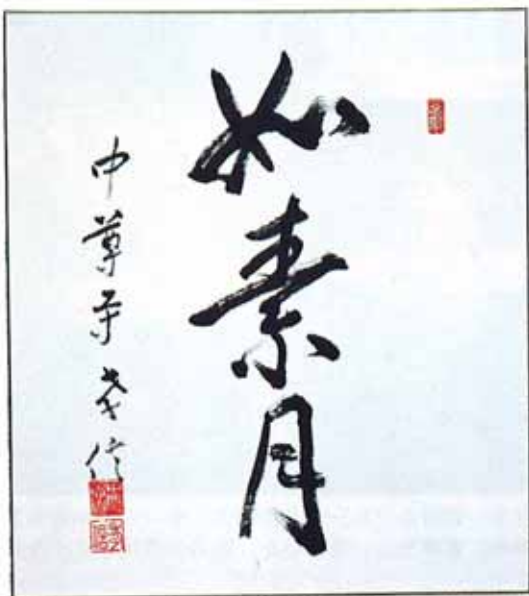 如素月
中尊寺 澄信